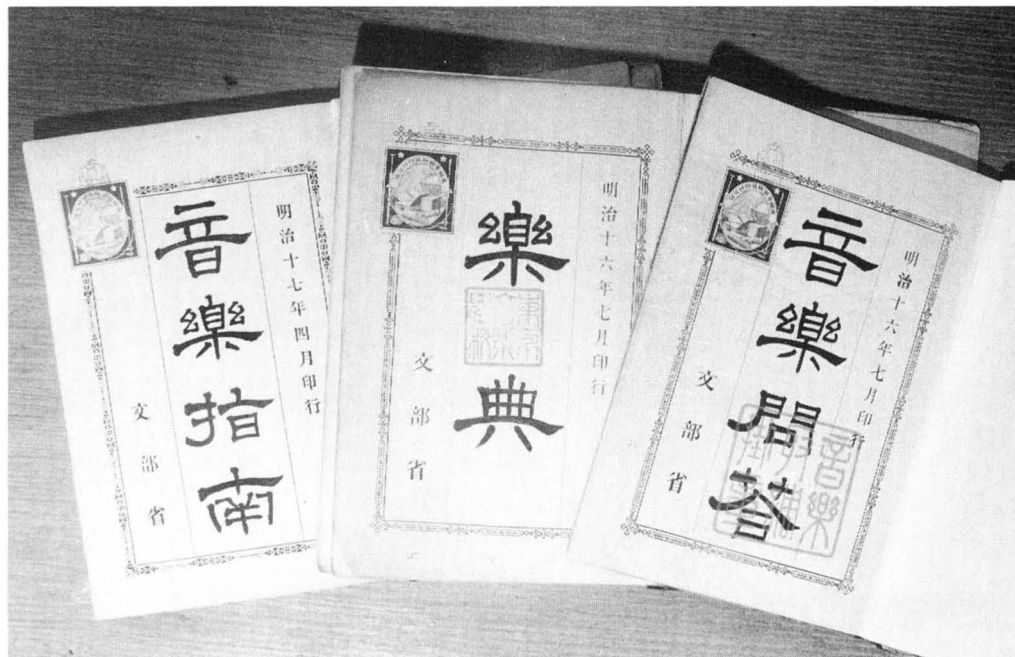 明治十六年七月印行
音樂問荅
文部省
明治十六年七月印行
樂典
文部省
明治十七年四月印行
音樂指南
文部省